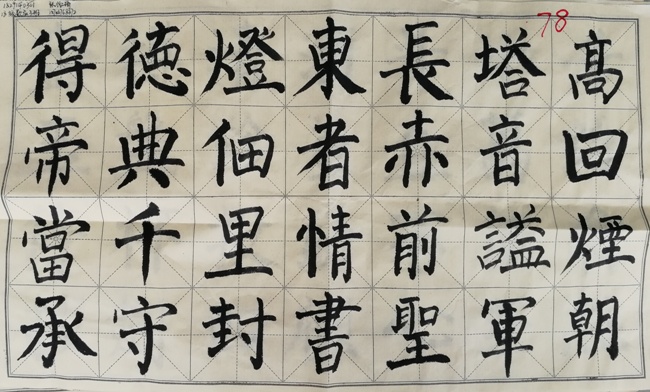 高回煙朝
塔音謚軍
長赤前聖
東者情書
燈佃里封
德典千守
得帝當承
78